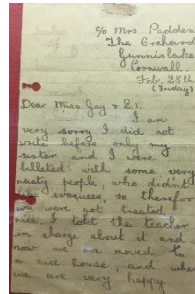 c/o Mrs. Padden
The Orchard
Gunnislake
Cornwall.
Feb. 28th
(Friday)
Dear Miss Jay & E1.
I am
very sorry I did not
write before only my
sister and I were
billeted with some very
nasty people, who didn't
like evacuees, so therefor
we were not treated
nice. I told the teacher
in charge about it and
now we are moved to
a nice house, and where
we are very happy